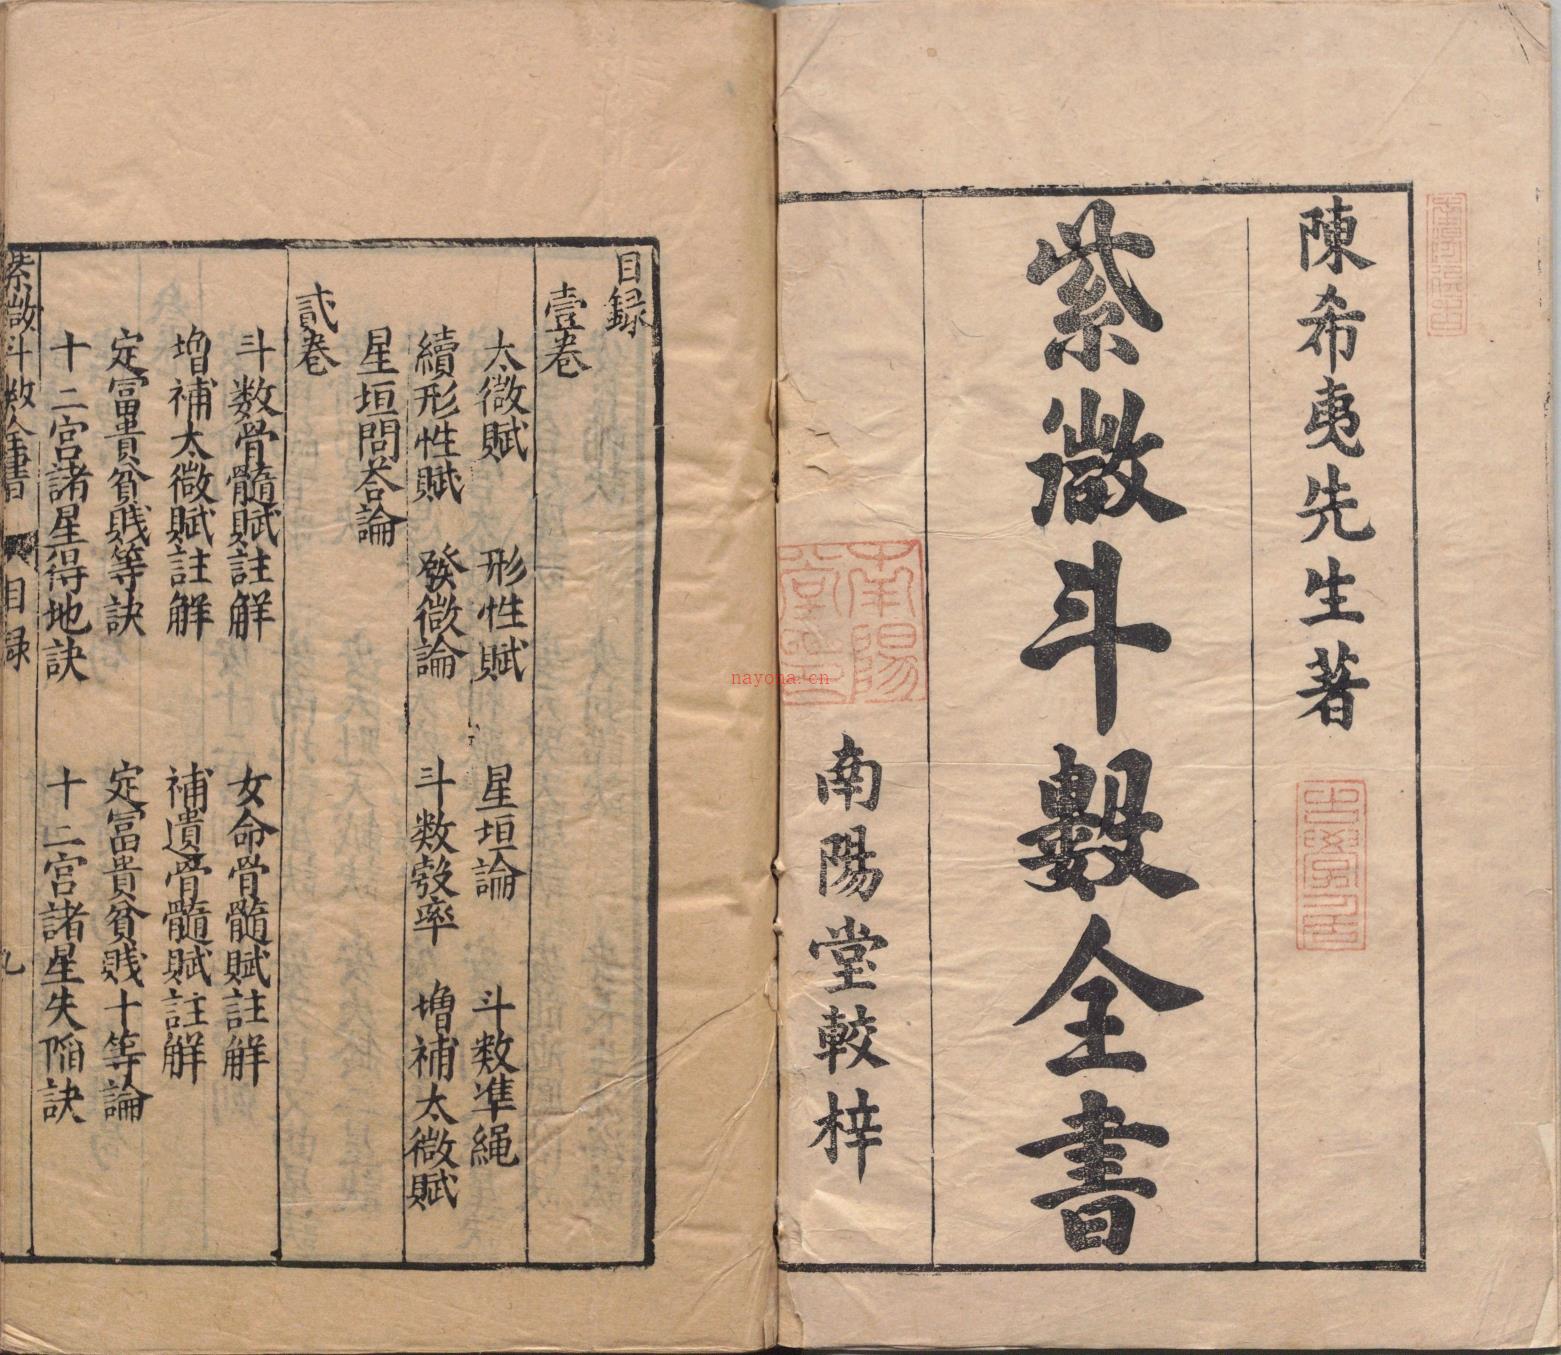 陳希夷先生著
紫微斗數全書
南陽堂較梓
南陽
堂
nayona.cn
目録
壹卷
太微賦 形性賦 星垣論 斗数準繩
續形性賦 發微論 斗数彀率 増補太微賦
星垣問荅論
貳卷
斗数骨髓賦註解 女命骨髓賦註解
増補太微賦註解 補遺骨髓賦註解
定冨貴貧賎等訣 定冨貴貧賎十等論
十二宮諸星得地訣 十二宮諸星失陥訣
紫微斗数全書 目録 九